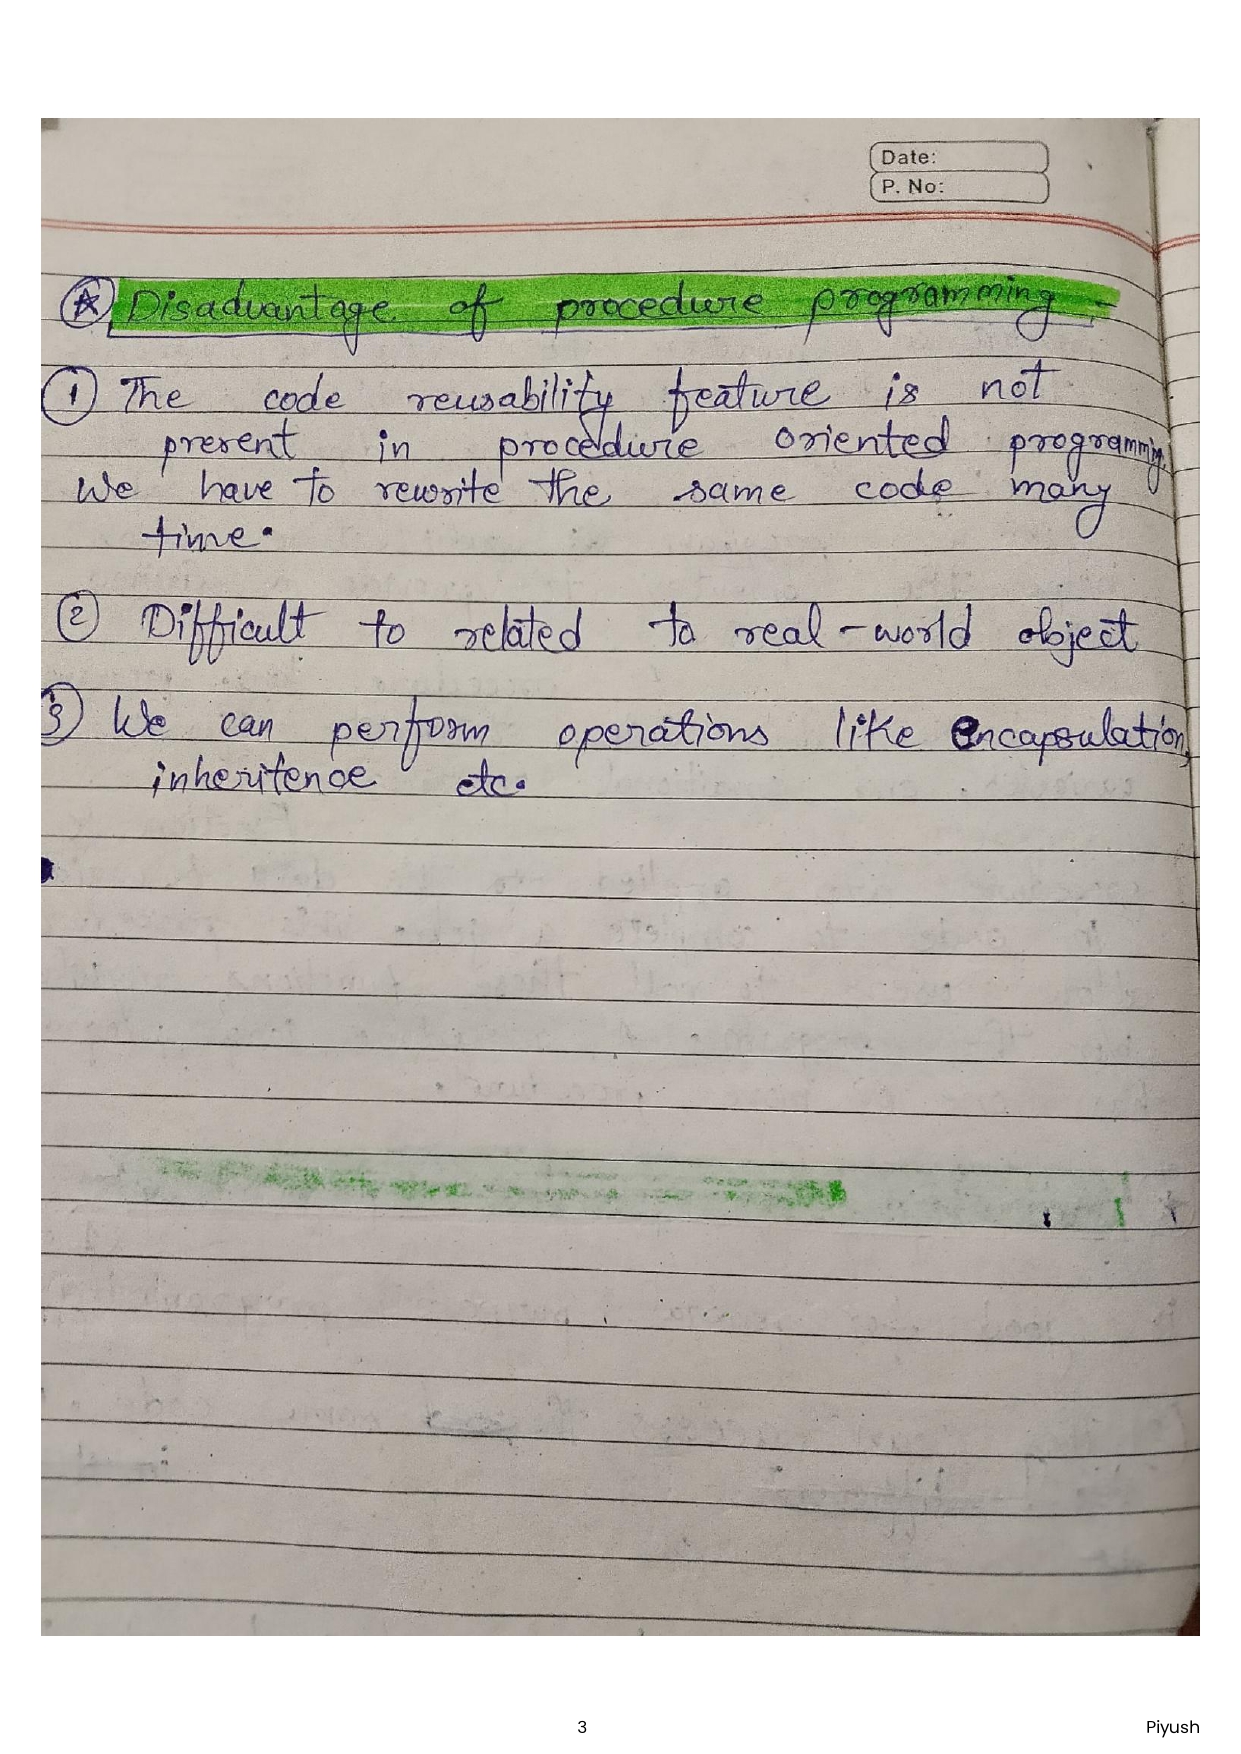 Date:
P. No:
Disadvantage of procedure programming -
① The code reusability feature is not
present in procedure oriented programming.
We have to rewrite the same code many
time.
② Difficult to related to real-world object
③ We can perform operations like encapsulation,
inheritence etc.
3
Piyush